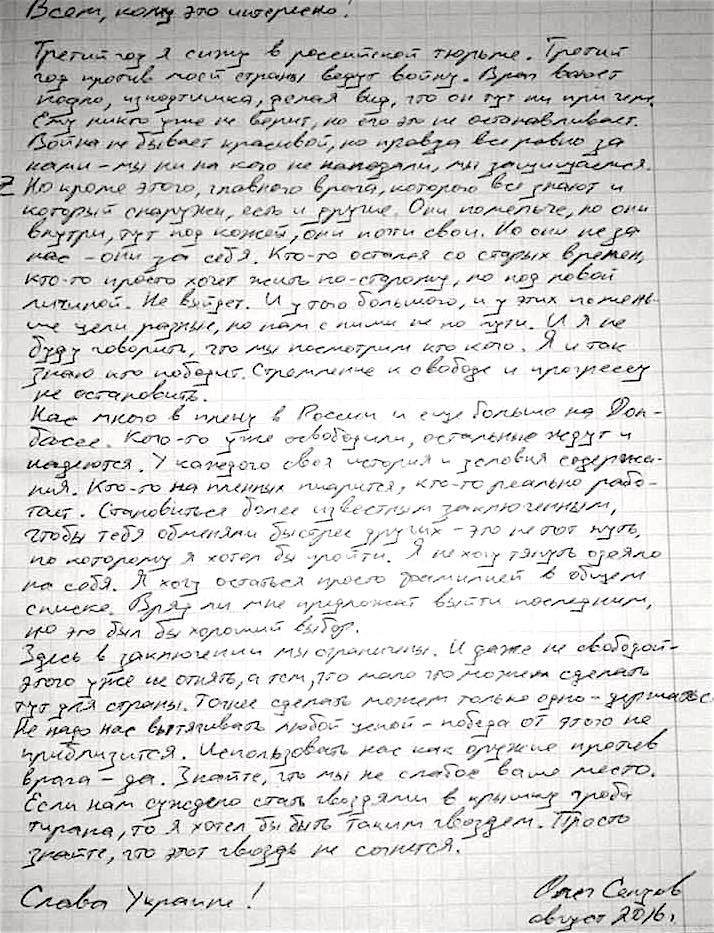 Всем, кому это интересно!
Третий год я сижу в российской тюрьме. Третий
год против моей страны ведут войну. Враг воюет
подло, исподтишка, делая вид, что он тут ни при чем.
Ему никто уже не верит, но его это не останавливает.
Война не бывает красивой, но правда все равно за
нами – мы ни на кого не нападали, мы защищаемся.
Но кроме этого, главного врага, которого все знают и
который снаружи, есть и другие. Они помельче, но они
внутри, тут под кожей, они почти свои. Но они не за
нас – они за себя. Кто-то остался со старых времен,
кто-то просто хочет жить по-старому, но под новой
личиной. Не выйдет. И у того большого, и у этих помень-
ше цели разные, но нам с ними не по пути. И я не
буду говорить, что мы посмотрим кто кого. Я и так
знаю кто победит. Стремление к свободе и прогрессу
не остановить.
Нас много в плену в России и еще больше на Дон-
бассе. Кого-то уже освободили, остальные ждут и
надеются. У каждого своя история и условия содержа-
ния. Кто-то на пленных пиарится, кто-то реально рабо-
тает. Становиться более известным заключенным,
чтобы тебя обменяли быстрее других – это не тот путь,
по которому я хотел бы пройти. Я не хочу тянуть одеяло
на себя. Я хочу остаться просто фамилией в общем
списке. Вряд ли мне предложат выйти последним,
но это был бы хороший выбор.
Здесь в заключении мы ограничены. И даже не свободой –
этого уже не отнять, а тем, что мало что можем сделать
тут для страны. Точнее сделать можем только одно – держаться.
Не надо нас вытягивать любой ценой – победа от этого не
приблизится. Использовать нас как оружие против
врага – да. Знайте, что мы не слабое ваше место.
Если нам суждено стать гвоздями в крышку гроба
тирана, то я хотел бы быть таким гвоздем. Просто
знайте, что этот гвоздь не согнется.
Слава Украине!
Олег Сенцов
август 2016 г.